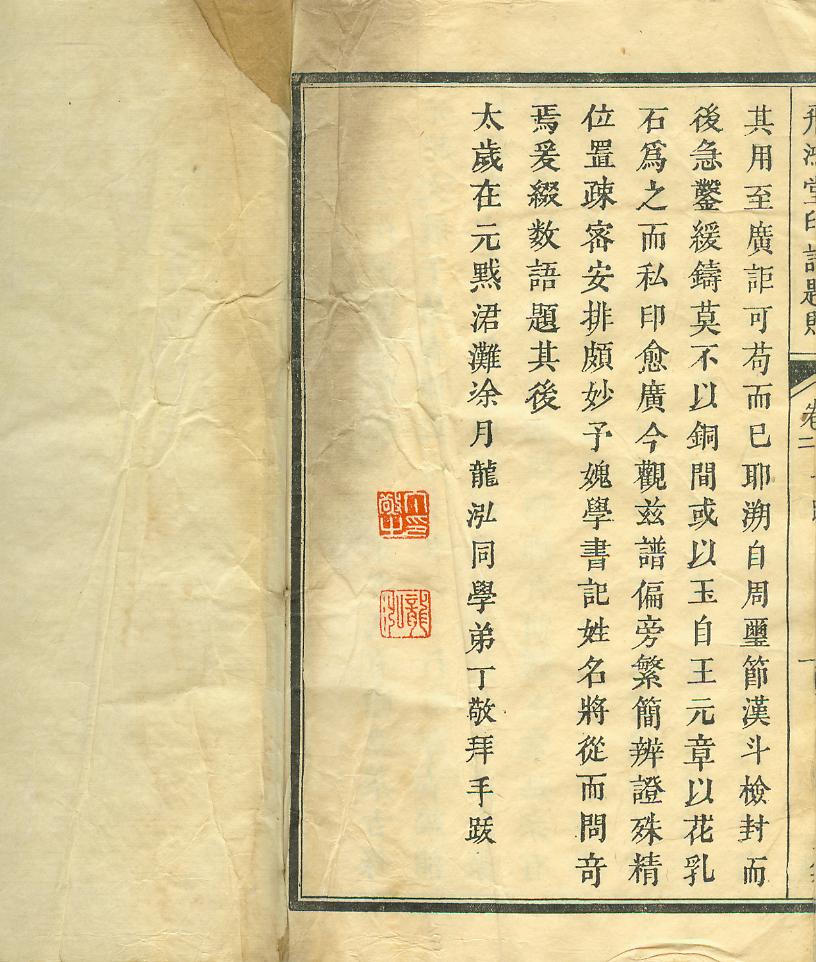 飛鴻堂印譜題賦
卷二
其用至廣詎可苟而已耶溯自周璽節漢斗檢封而
後急鑿緩鑄莫不以銅間或以玉自王元章以花乳
石爲之而私印愈廣今觀兹譜偏旁繁簡辨證殊精
位置疎密安排頗妙予媿學書記姓名將從而問奇
焉爰綴数語題其後
太歲在元黓涒灘涂月龍泓同學弟丁敬拜手跋
丁敬之印
龍泓